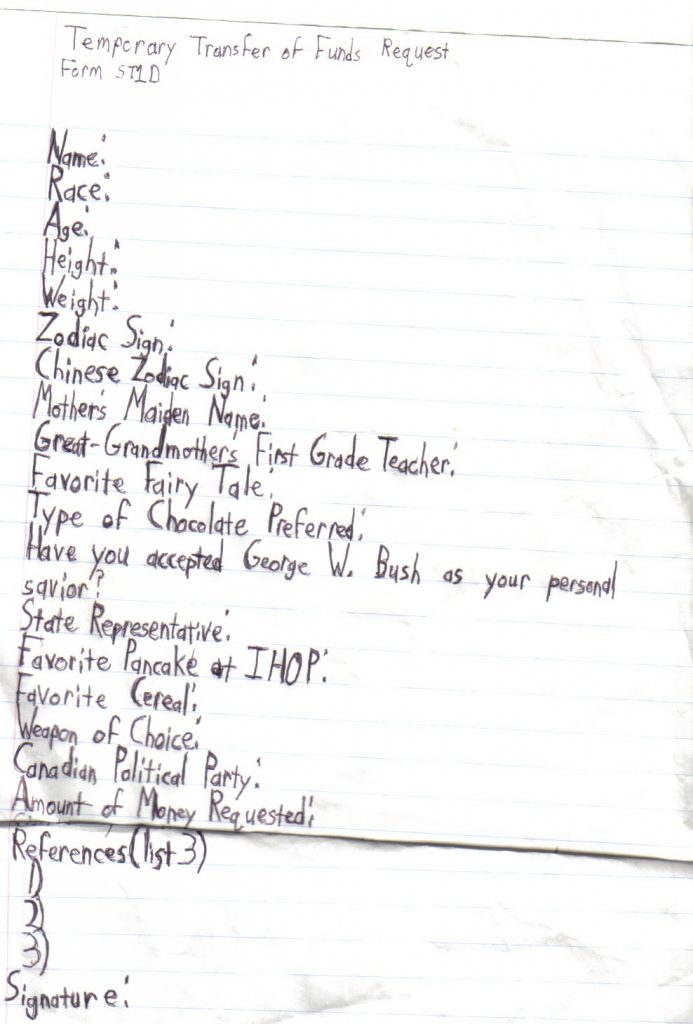 Temporary Transfer of Funds Request
Form ST1D
Name:
Race:
Age:
Height:
Weight:
Zodiac Sign:
Chinese Zodiac Sign:
Mother's Maiden Name:
Great-Grandmothers First Grade Teacher:
Favorite Fairy Tale:
Type of Chocolate Preferred:
Have you accepted George W. Bush as your personal
savior?
State Representative:
Favorite Pancake at IHOP:
Favorite Cereal:
Weapon of Choice:
Canadian Political Party:
Amount of Money Requested:
References(list 3)
1)
2)
3)
Signature: